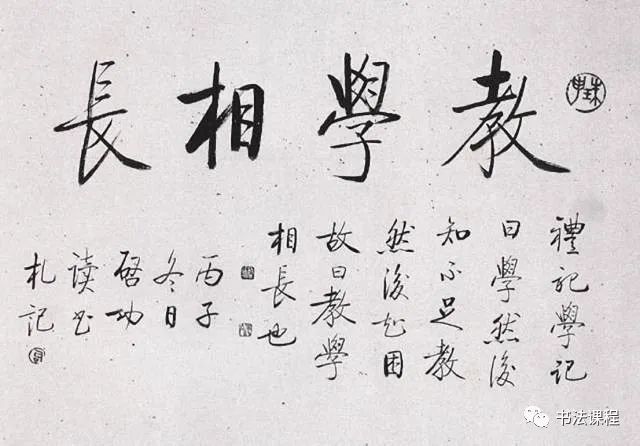 教學相長
禮記學記
曰學然後
知不足教
然後知困
故曰教學
相長也
丙子
冬日
啓功
读书
札記
书法课程